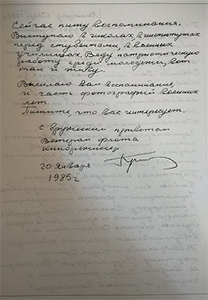 Сейчас пишу воспоминания.
Выступаю в школах, в институтах
перед студентами, в военных
училищах. Веду патриотическую
работу среди молодежи, вот
так и живу.
Высылаю Вам воспоминания
и часть фотографий военных
лет.
Пишите, что Вас интересует.
С дружеским приветом
Ветеран флота
20 января
1985 г